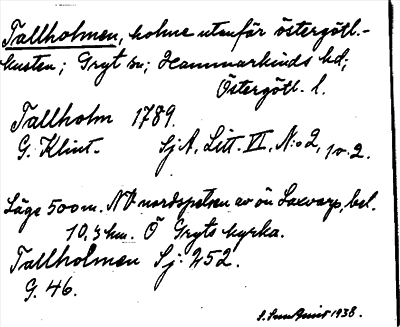 Tallholmen, holme utanför östergötl.-
kusten; Gryt sn; Hammarkinds hd;
Östergötl. l.
Tallholm 1789.
G. Klint. SjA, Litt. VI, N:o 2, 1 o. 2.
Läge 500 m. NV nordspetsen av ön Laxvarp, bel.
10,3 km. Ö Gryts kyrka.
Tallholmen Sj: 252.
G. 46.
1938.